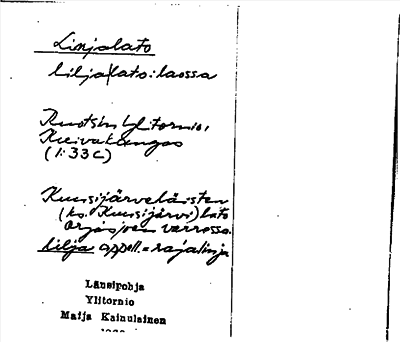 Linjalato
lilja|lato : laossa
Ruotsin Ylitornio,
Kuivakangas
(1:33 c)
Kuusijärveläisten
(ks. Kuusijärvi) lato
Orjasjoen varressa.
lilja appell. = rajalinja
Länsipohja
Ylitornio
Maija Kainulainen